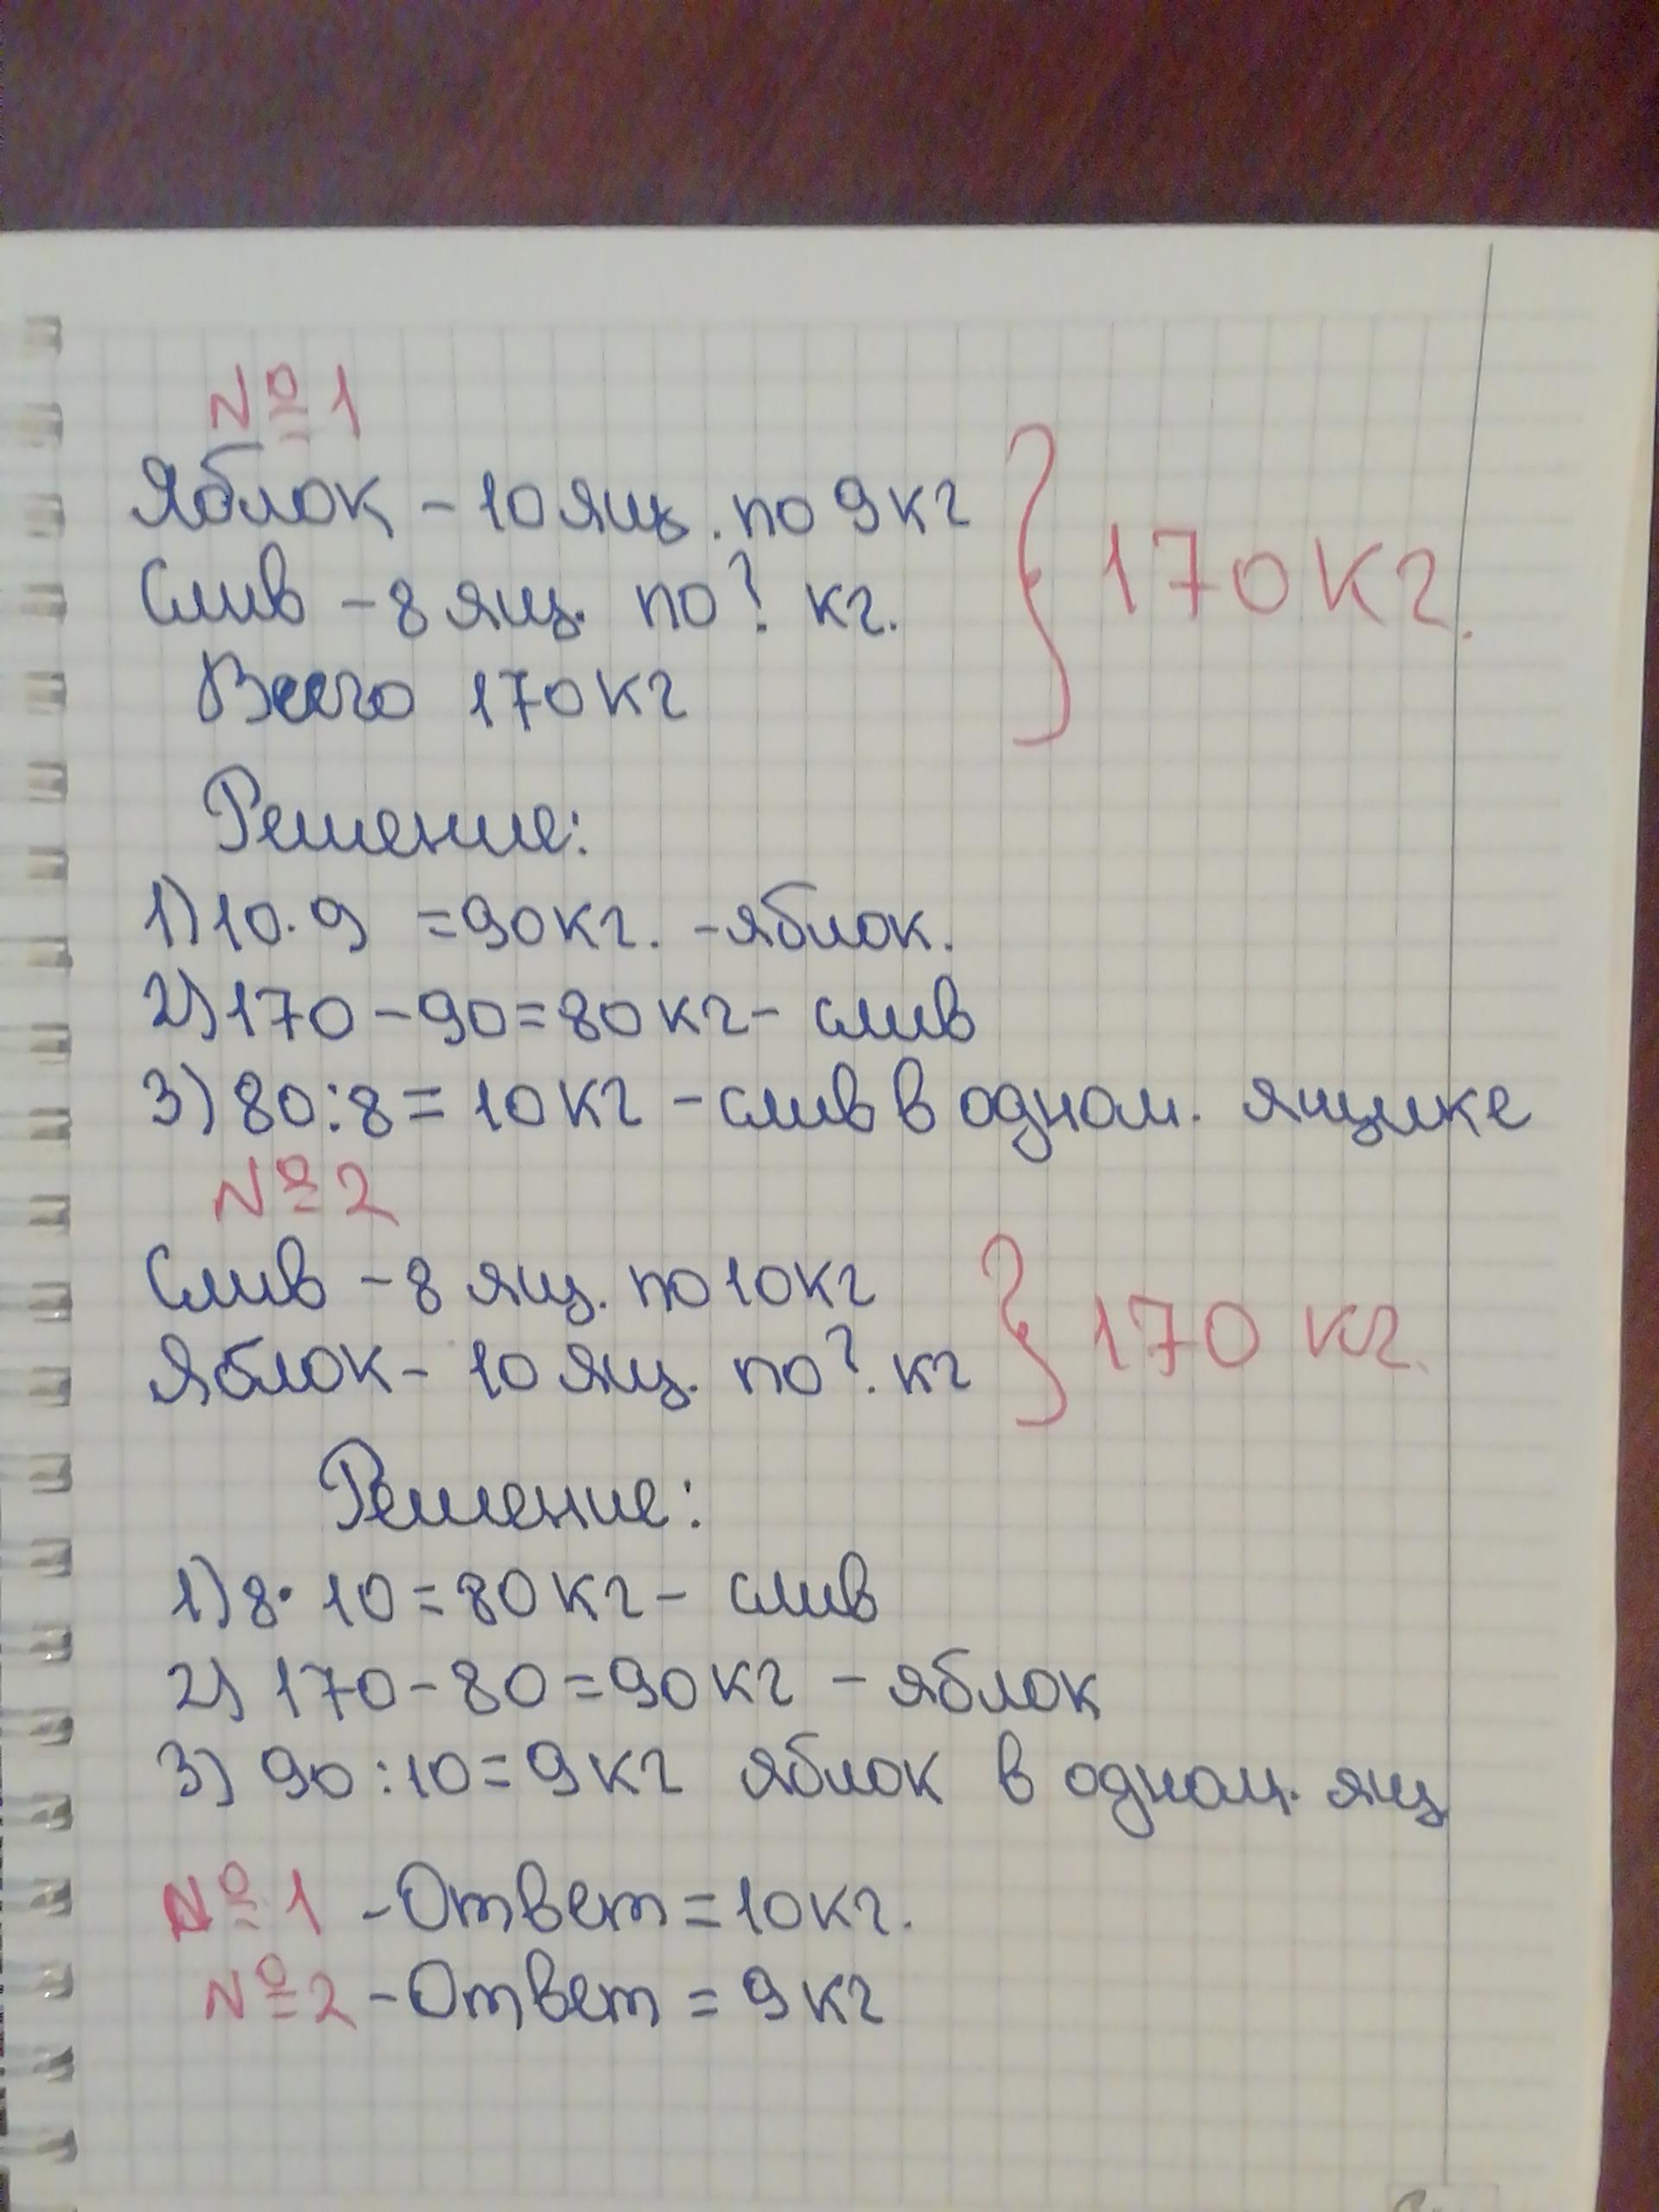 №1
Яблок - 10 ящ. по 9 кг } 170 кг.
Слив - 8 ящ. по ? кг.
Всего 170 кг
Решение:
1) 10 · 9 = 90 кг. - яблок.
2) 170 - 90 = 80 кг - слив
3) 80 : 8 = 10 кг - слив в одном. ящике
№2
Слив - 8 ящ. по 10 кг } 170 кг.
Яблок - 10 ящ. по ? кг
Решение:
1) 8 · 10 = 80 кг - слив
2) 170 - 80 = 90 кг - яблок
3) 90 : 10 = 9 кг яблок в одном. ящ
№1 - Ответ = 10 кг.
№2 - Ответ = 9 кг